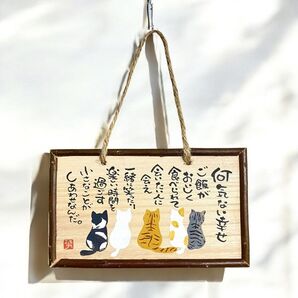 何気ない幸せ
ご飯が
おいしく
食べられて
会いたい人に
会え
一緒に笑ったり
楽しい時間を
過ごす
小さなことが
しあわせなんだ。